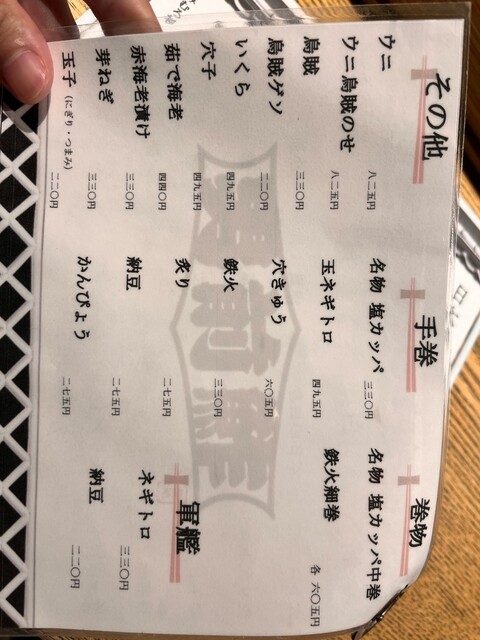 その他
ウニ 八二五円
ウニ烏賊のせ 八二五円
烏賊 三三〇円
烏賊ゲソ 二二〇円
いくら 四九五円
穴子 四九五円
茹で海老 四四〇円
赤海老漬け 三三〇円
芽ねぎ 三三〇円
玉子 (にぎり・つまみ) 二二〇円
手巻
名物 塩カッパ 三三〇円
玉ネギトロ 四九五円
穴きゅう 六〇五円
鉄火 三三〇円
炙り 二七五円
納豆 二七五円
かんぴょう 二七五円
巻物
名物 塩カッパ中巻
鉄火細巻 各 六〇五円
軍艦
ネギトロ 三三〇円
納豆 二二〇円
男前